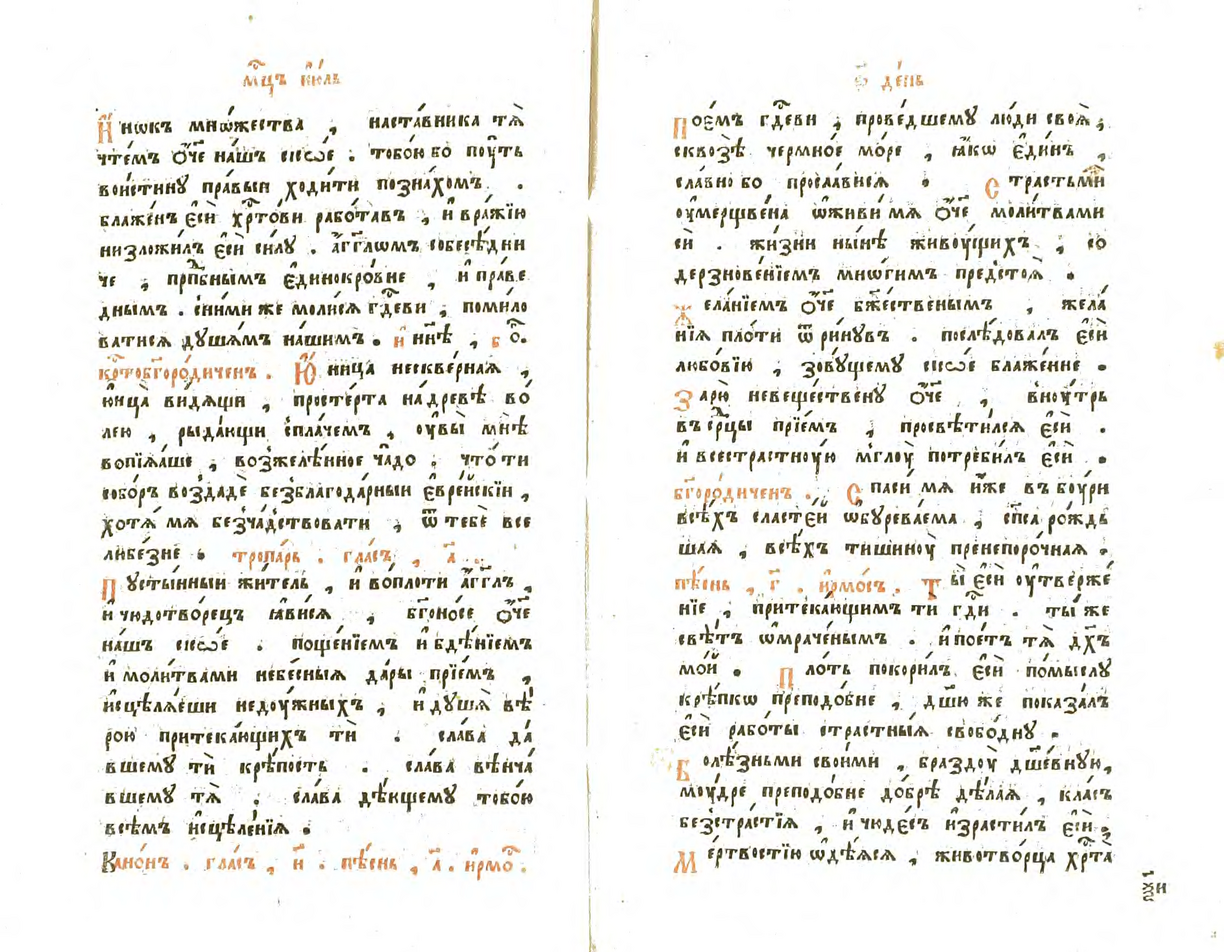 мⷭ҇цъ ию́ль
И҆нѡкъ мнѡ́жества , наста́вника тѧ̀
чте́мъ ѻ҆́ч҃е на́шъ сисѡ́е . тобо́ю бо пꙋ́ть
вои́стинꙋ пра́выи ходи́ти позна́хомъ .
блаже́нъ є҆сѝ хрⷭ҇то́ви рабо́тавъ , и҆ вра́жїю
низложи́лъ є҆сѝ си́лꙋ . а҆́гг҃лѡмъ собесѣ́дни
че , прпⷣбнымъ є҆динокро́вне , и҆ пра́ве
днымъ . с ни́ми же моли́сѧ гдⷭ҇еви , поми́ло
ватисѧ дꙋша́мъ на́шимъ . и҆ ны́нѣ , б о .
крⷭ҇тобг҃оро́диченъ . Ю҆́ница нескве́рнаѧ ,
ю҆нца̀ ви́дѧщи , просте́рта на дре́вѣ во
лею , рыда́ющи с пла́чемъ , оу҆вы̀ мнѣ̀
вопїѧ́ше , возжелѣ́нное ча́до . что́ ти
собо́ръ воздадѐ безблагода́рныи є҆вре́йскїи ,
хотѧ̀ мѧ безча́дствовати , ѿ тебѐ все
любе́зне . тропа́рь . гла́съ , а҃ .
Пꙋсты́нныи жи́тель , и҆ во пло́ти а҆́гг҃лъ ,
и҆ чюдотво́рецъ ꙗ҆ви́сѧ , бг҃оно́се ѻ҆́ч҃е
на́шъ сисѡ́е . поще́нїемъ и҆ бдѣ́нїемъ
и҆ моли́твами небе́сныѧ да́ры прїе́мъ ,
и҆сцѣлѧ́еши недоу́жныхъ , и҆ дꙋ́шѧ вѣ́
рою притека́ющихъ тѝ . сла́ва да́
вшемꙋ тѝ крѣ́пость . сла́ва вѣнча́
вшемꙋ тѧ̀ . сла́ва дѣ́ющемꙋ тобо́ю
всѣ́мъ и҆сцѣле́нїѧ .
Кано́нъ . гла́съ , и҃ . пѣ́снь , а҃ . и҆рмо́ⷭ .
день
Пое́мъ гдⷭ҇еви , прове́дшемꙋ лю́ди своѧ̀ ,
сквозѣ̀ чермно́е мо́ре , ꙗ҆́кѡ є҆ди́нъ ,
сла́вно бо просла́висѧ . Страстьмѝ
оу҆мерщве́на ѡ҆живи́ мѧ ѻ҆́ч҃е моли́твами
си . жи́зни ны́нѣ живоу́щихъ , со
дерзнове́нїемъ мнѡ́гимъ предстоѧ̀ .
Жела́нїемъ ѻ҆́ч҃е бж҃е́ственымъ , жела́
нїѧ пло́ти ѿри́нꙋвъ . послѣ́довалъ є҆сѝ
любо́вїю , зовꙋ́щемꙋ сисѡ́е блаже́нне .
Зарю̀ невеще́ственꙋ ѻ҆́ч҃е , вноу́трь
въ срⷣцы прїе́мъ , просвѣти́лсѧ є҆сѝ .
и҆ всестрастноу́ю мглоу̀ потреби́лъ є҆сѝ .
бг҃оро́диченъ . Спаси́ мѧ и҆́же въ боу́ри
всѣ́хъ сласте́й ѡ҆бꙋрева́ема , сп҃са ро́ждь
шаѧ , всѣ́хъ тишиноу̀ пренепоро́чнаѧ .
пѣ́снь , г҃ . и҆рмо́съ . Ты̀ є҆сѝ оу҆твержé
нїе , притека́ющимъ ти гдⷭ҇и . ты́ же
свѣ́тъ ѡ҆мраче́нымъ . и҆ пое́тъ тѧ̀ дх҃ъ
мо́й . Пло́ть покори́лъ є҆сѝ по́мыслꙋ
крѣ́пкѡ преподо́бне , дш҃ю же показа́лъ
є҆сѝ рабо́ты стра́стныѧ свобо́днꙋ .
Болѣ́зньми свои́ми , браздоу̀ дш҃е́внꙋю ,
моу́дре преподо́бне до́брѣ дѣ́лаѧ , кла́съ
безстра́стїѧ , и҆ чюде́съ и҆зрасти́лъ є҆сѝ .
Ме́ртвостїю ѡ҆дѣ́ѧсѧ , животво́рца хрⷭ҇та̀